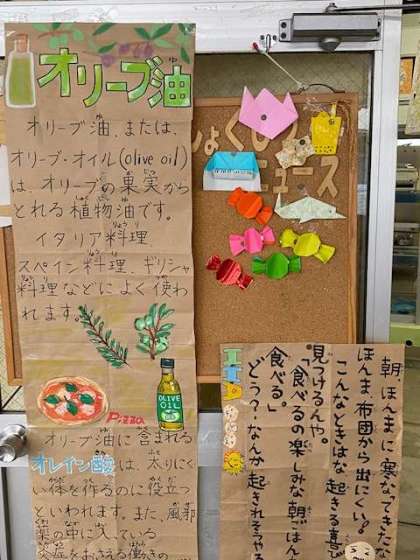 オリーブ油
オリーブ油、または、
オリーブ・オイル(olive oil)
は、オリーブの果実から
とれる植物油です。
イタリア料理
スペイン料理、ギリシャ
料理などによく使わ
れます。
Pizza
OLIVE
OIL
オリーブ油に含まれる
オレイン酸は、太りにく
い体を作るのに役立つ
といわれます。また、風邪
薬の中に入っている
炎症をおさえる働きの
ニュース
朝、ほんまに寒なってきたな
ほんま布団から出にくい。
こんなときはな起きる意
見つけるんや。
「食べるの楽しみな朝ごはん
食べる。」
どう？なんか起きれそうやろ